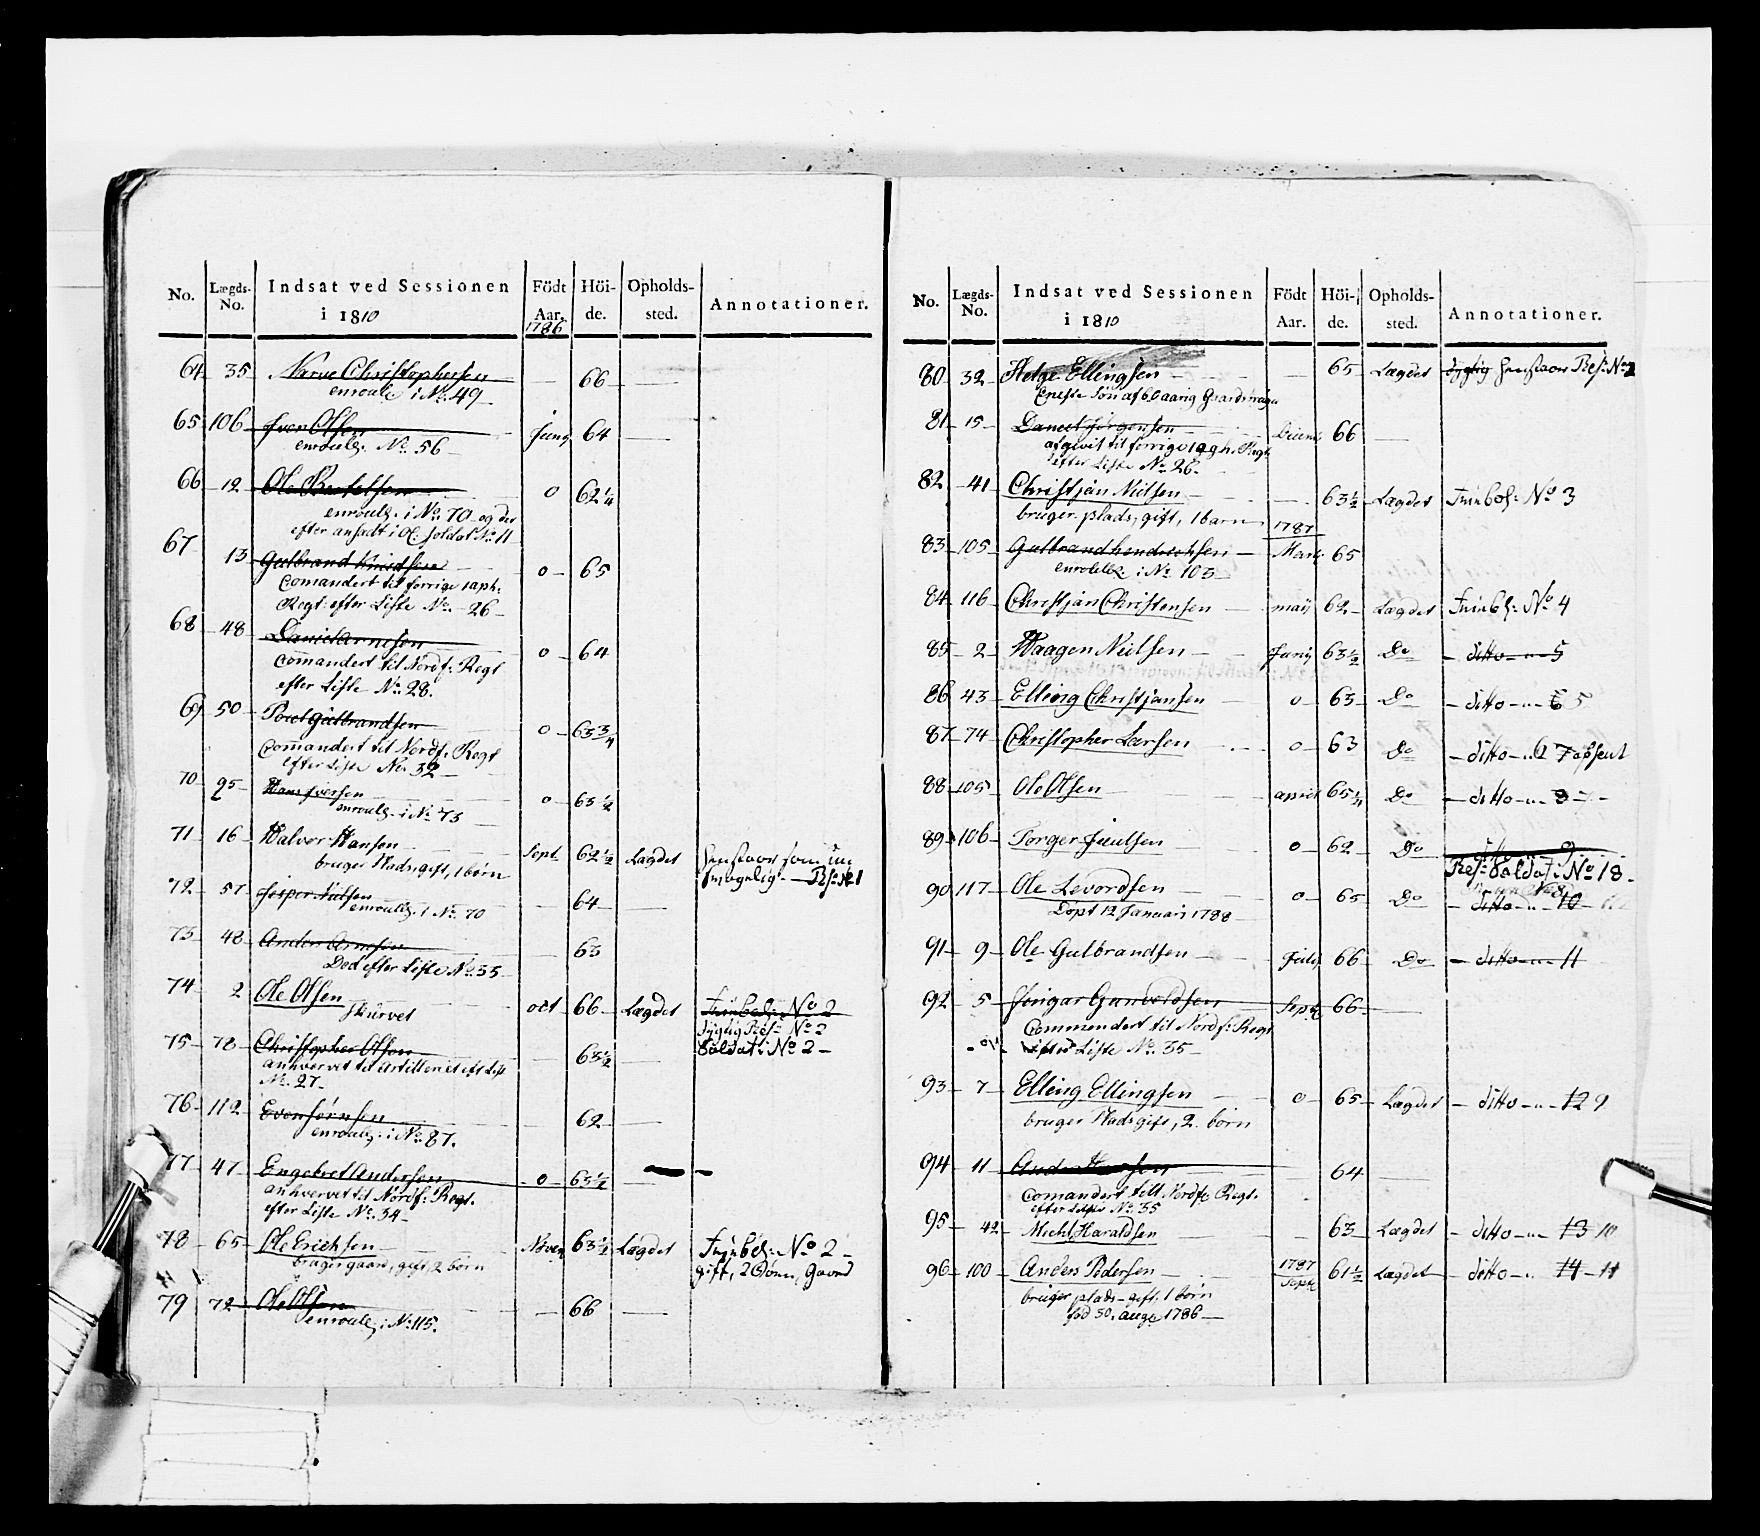 No. Lægds-No. Indsat ved Sessionen i 1810 Födt Aar. Höi-de. Opholds-sted. Annotationer.
1786
64 35 Narve Christophersen — 66 —
enroule i No. 49
65 106 Iver Olsen Junj 64 —
enroulg. No. 56
66 12 Ole Bertelsen o 62 1/4
enroulg. i No. 70 og der
efter ansadt i Ol. Soldat No. 11
67 13 Gulbrand Knudsen o — 65
Comandert til forrige
Regt. efter Liste No. 26
68 48 Daniel Arnesen o — 64
comandert til Nordf. Regt
efter Liste No. 28.
69 50 Poul Gulbrandsen o — 63 3/4
Comandert til Nordf. Regt
efter Liste No. 32
70 95 Hans Iversen o — 63 1/2
enroulg. i No. 73
71 16 Halvor Hansen Sept. 62 1/2 Lægdet
bruger Plads, gift, 1 børn
72 57 Jesper Nielsen — 64 —
enroulg. i No. 70
73 48 Anders Arnesen — 63
Død efter Liste No. 33
74 2 Ole Olsen oct 66 Lægdet No 2
Skurvet dygtig Res. No 2
Soldat i No 2 —
75 78 Christopher Olsen — 63 1/2 —
anhvervet til Artilleriet eft. List
No. 27
76 112 Even Jørnsen 62 —
enroulg. i No. 87.
77 47 Engebret Andersen o — 63 1/2 —
anhvervet til Nordf. Regt.
efter Liste No. 34
78 65 Ole Erichsen Noven 63 1/2 Lægdet No 2 —
bruger gaard, gift, 2 børn gift, 2 Gaard
79 72 Ole Olsen — 66 —
enroulg. i No. 115.
No. Lægds-No. Indsat ved Sessionen i 1810 Födt Aar. Höi-de. Opholds-sted. Annotationer.
80 32 Helge Ellingsen — 65 Lægdet dygtig Res. No 1
Eneste Søn af 60 aarig Gaardmand
81 15 Daniel Jørgensen 66 —
afgivet til forrige Regt.
efter Liste No. 26.
82 41 Christjan Nielsen — 63 1/2 Lægdet No 3
bruger plads, gift, 1 barn
1787
83 105 Gulbrand Hendrichsen — Mart. 65
enroulg. i No. 103
84 116 Christjan Christensen maij 62 Lægdet No 4
85 2 Waagen Nielsen Junij 63 1/2 Do — ditto — 5
86 43 Elling Christjansen o 63 Do — ditto — 6 5
87 74 Christopher Larsen o — 63 Do — ditto — 6 7 absent
88 105 Ole Olsen april 65 1/4 Do — ditto — 8 7 —
89 106 Torger Juulsen o — 62 Do 9
Res. Soldat. No 18.
90 117 Ole Levordsen o 65 Do — ditto — 10
Døpt 12 Januari 1788
91 9 Ole Gulbrandsen Julij 66 Do — ditto — 11
92 5 Gunvoldsen Septr 66 —
Commendert til Nordf. Regt.
efter Liste No. 35
93 7 Elling Ellingsen o — 65 Lægdet — ditto — 12 9
bruger Plads gift, 2 børn
94 11 Anders Hansen 64 —
comandert till Nordf. Regt.
efter Liste No. 35
95 42 Michl. Haraldsen — 63 Lægdet — ditto — 13 10
96 100 Anders Pedersen 1787 Septr 61 1/2 Lægdet — ditto — 14 11
bruger plads — gift. 1 børn
fød 30. Aug. 1786